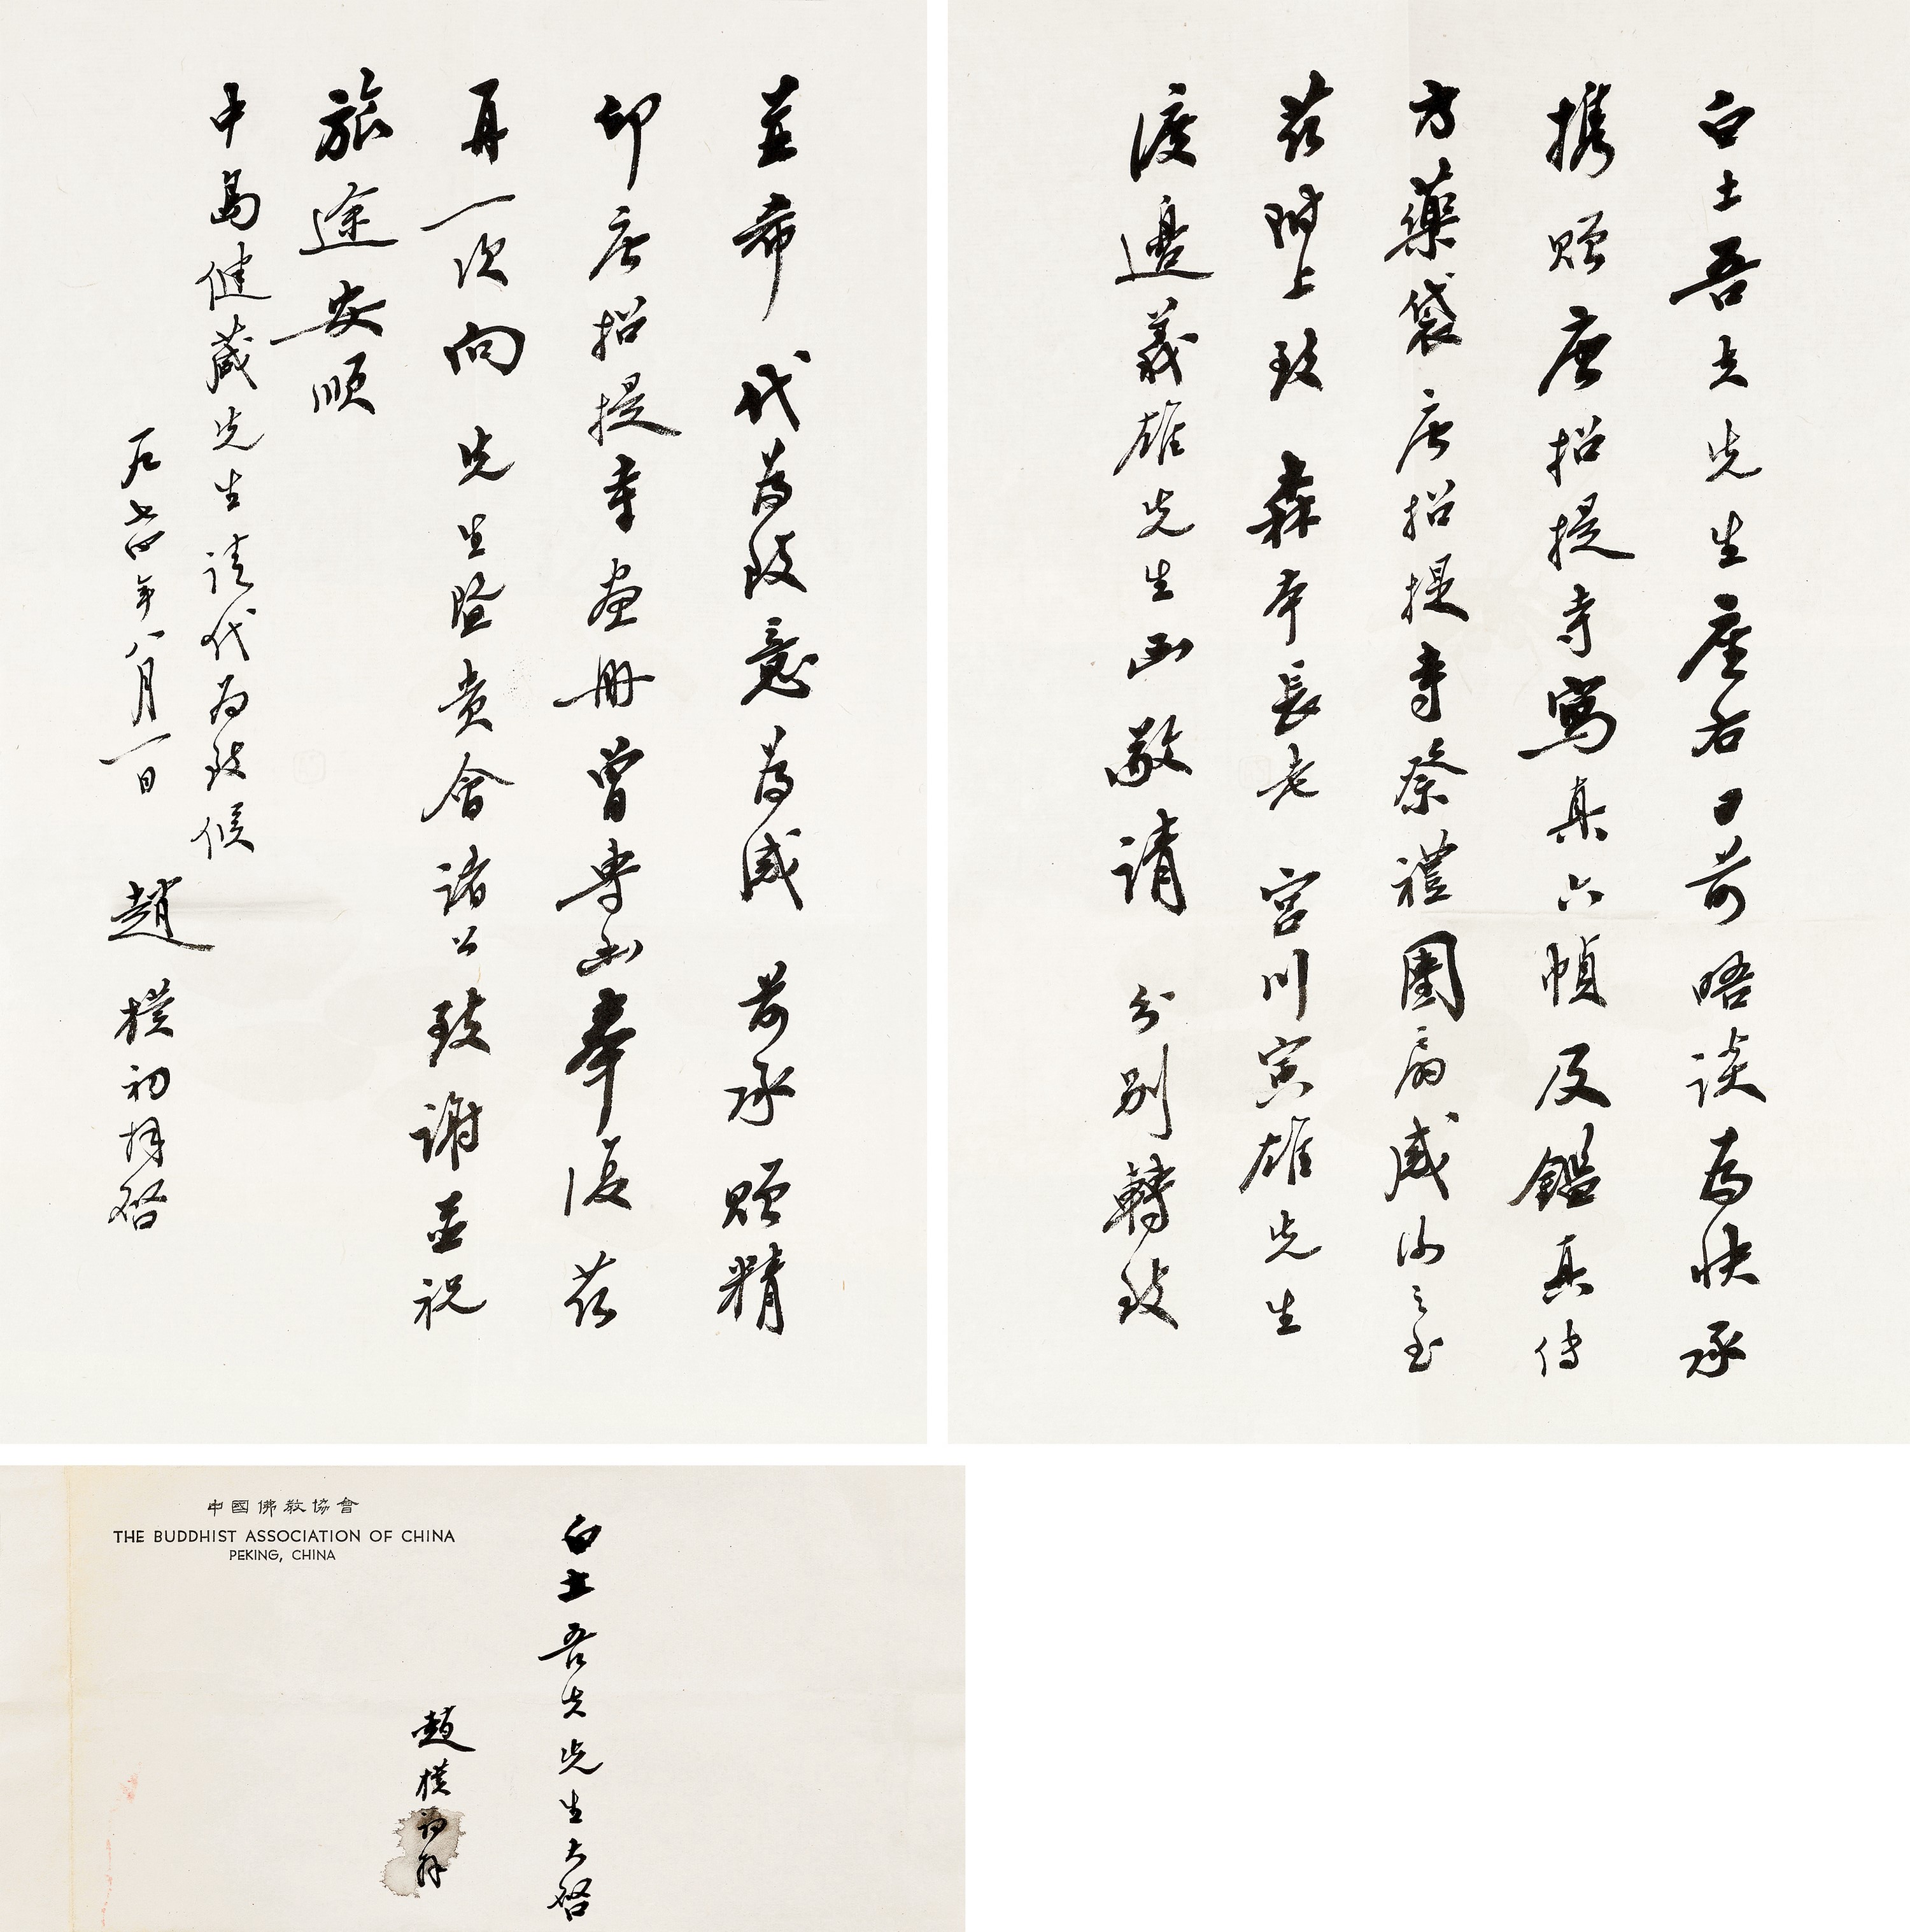 白土吾夫先生座右日前晤谈为快承
携赠唐招提寺写真六帧及鑑真传
方藥袋唐招提寺祭禮團扇感谢之至
兹附上致 森本長老 宫川寅雄先生
渡邊義雄先生函敬请 分别轉致
並希 代为致意为感 前承赠精
印唐招提寺画册曾专函奉復兹
再一次向 先生暨贵會诸公致谢並祝
旅途安顺
中島健藏先生请代为致候
一九七四年八月一日 趙樸初拜啓
中國佛教協會
THE BUDDHIST ASSOCIATION OF CHINA
PEKING, CHINA
白土吾夫先生大啓
趙樸初拜